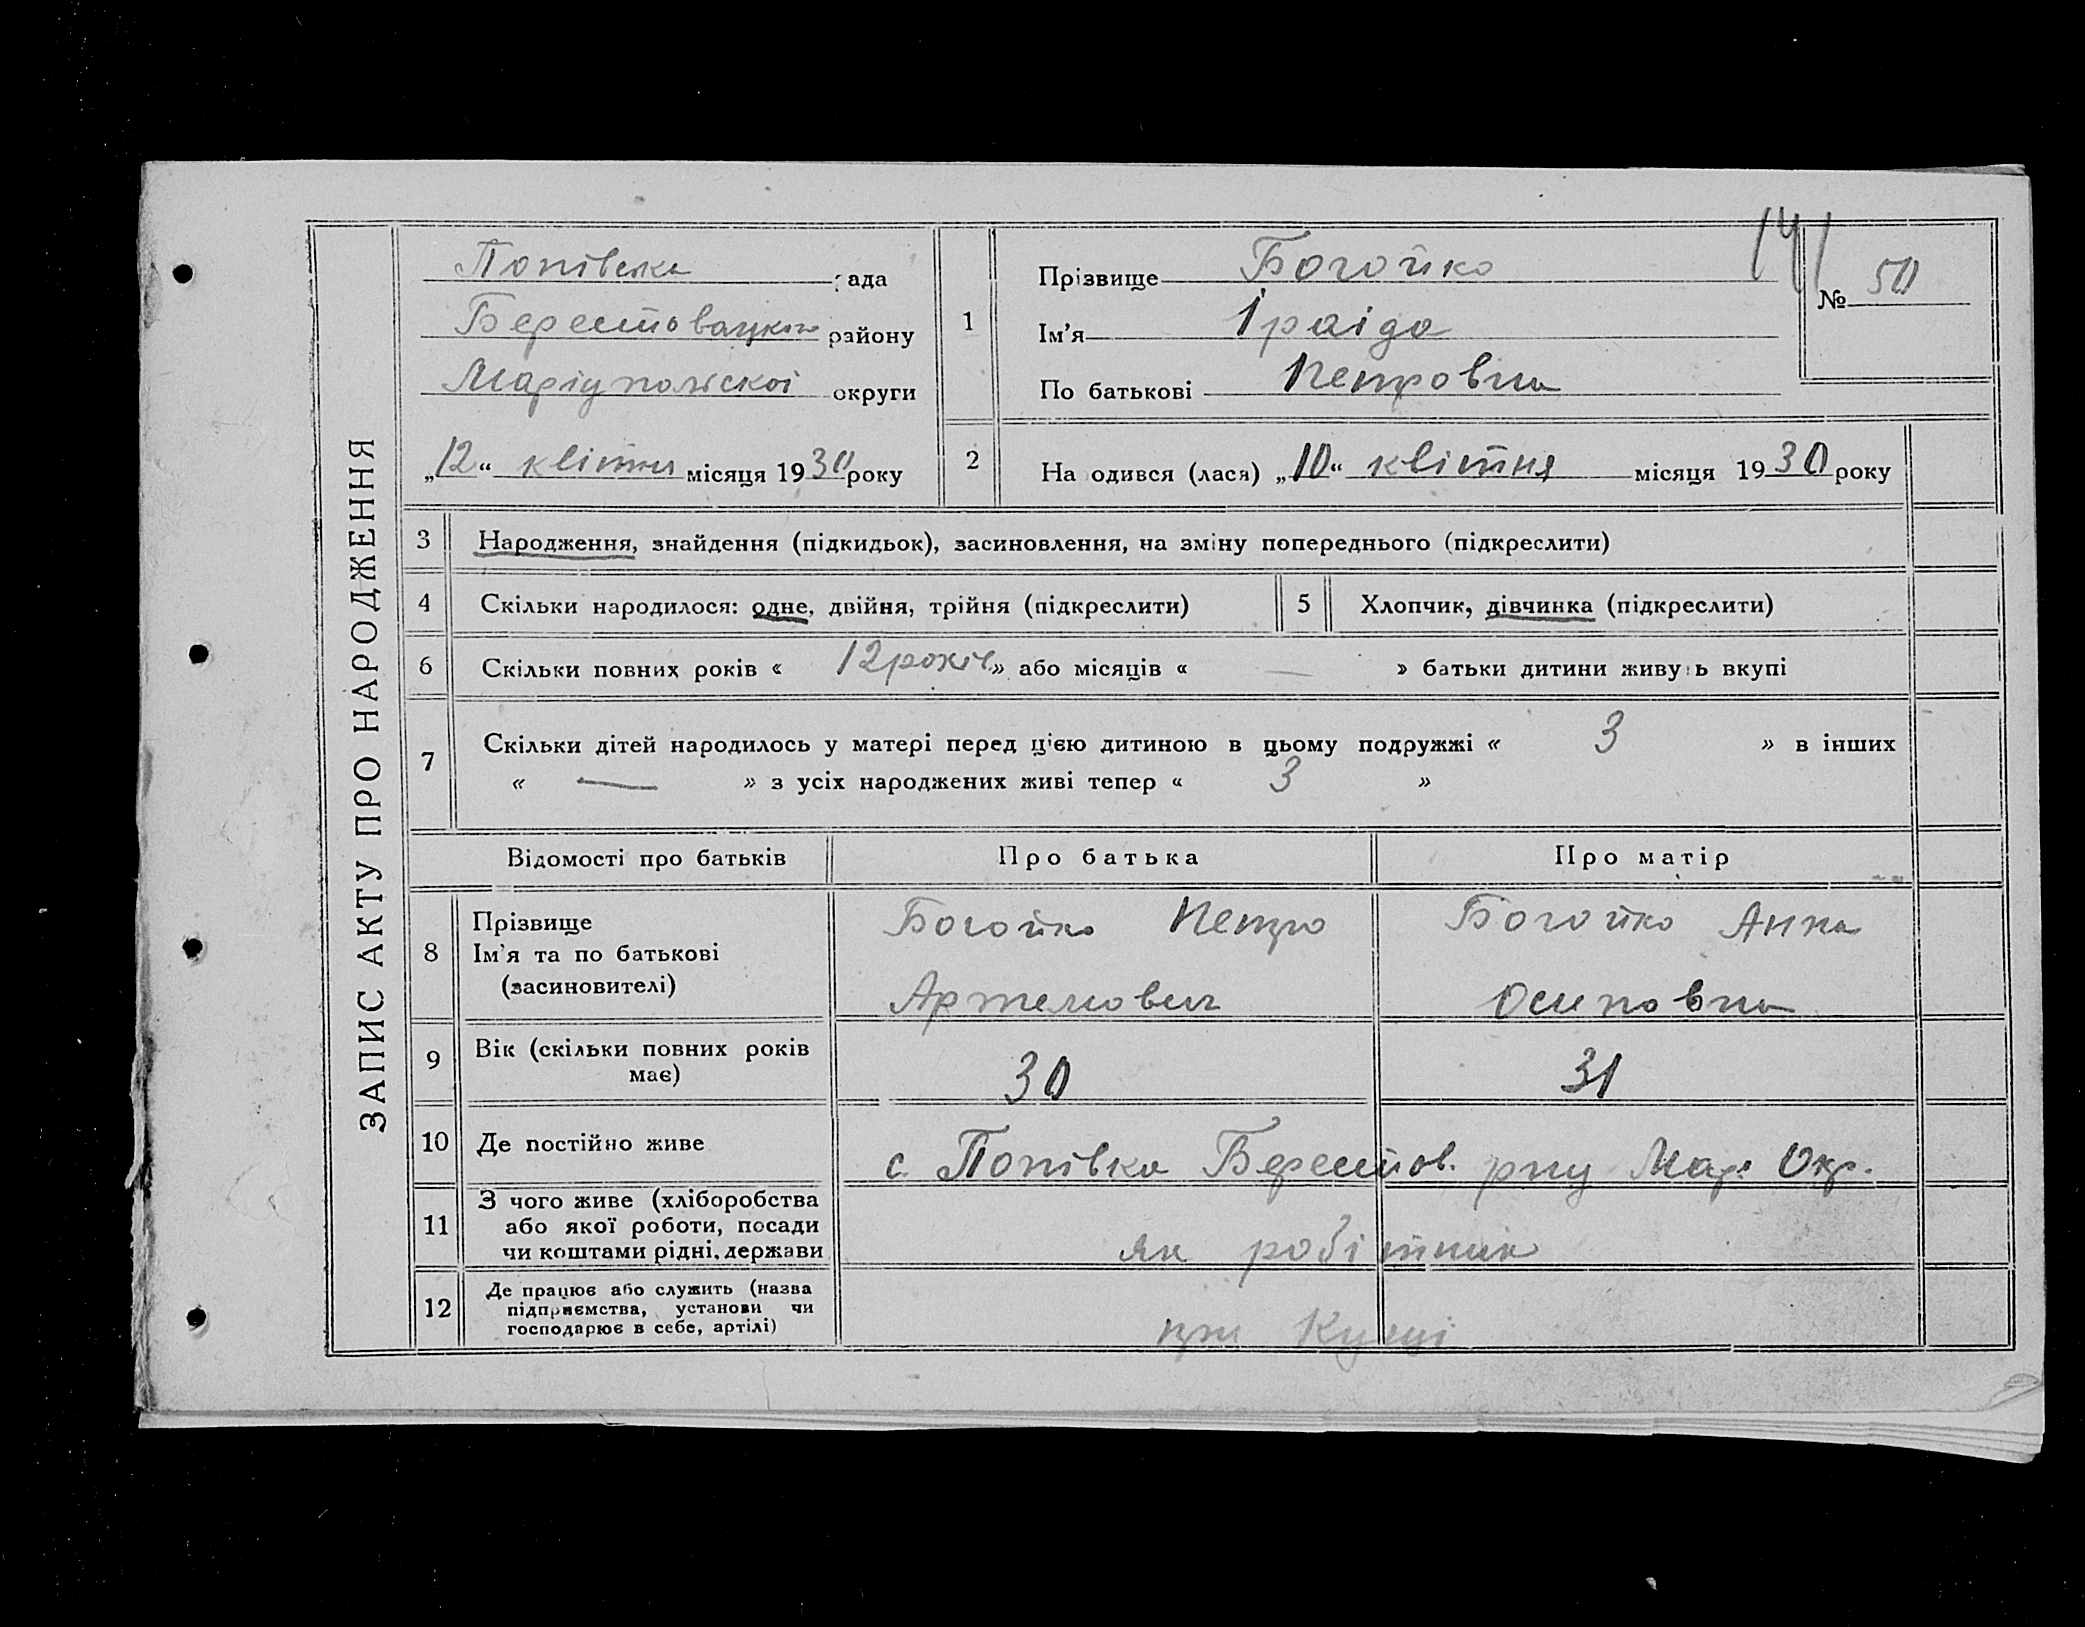 ЗАПИС АКТУ ПРО НАРОДЖЕННЯ
Попівська рада
Берестовацького району
Маріупольскоі округи
„12“ квітня місяця 1930 року
141
№ 50
1
Прізвище Богойко
Ім'я Іраіда
По батькові Петровна
2
На одився (лася) „10“ квітня місяця 1930 року
3 Народження, знайдення (підкидьок), засиновлення, на зміну попереднього (підкреслити)
4 Скільки народилося: одне, двійня, трійня (підкреслити)
5 Хлопчик, дівчинка (підкреслити)
6 Скільки повних років « 12 років » або місяців « — » батьки дитини живуть вкупі
7 Скільки дітей народилось у матері перед цією дитиною в цьому подружжі « 3 » в інших
« — » з усіх народжених живі тепер « 3 »
Відомості про батьків Про батька Про матір
8 Прізвище
Ім'я та по батькові
(засиновителі)
Богойко Петро
Артемович
Богойко Анна
Осиповна
9 Вік (скільки повних років
має)
30 31
10 Де постійно живе с. Попівка Берестов. р-ну Мар. Окр.
11 З чого живе (хліборобства
або якої роботи, посади
чи коштами рідні, держави
як робітник
12 Де працює або служить (назва
підприємства, установи чи
господарює в себе, артілі)
при